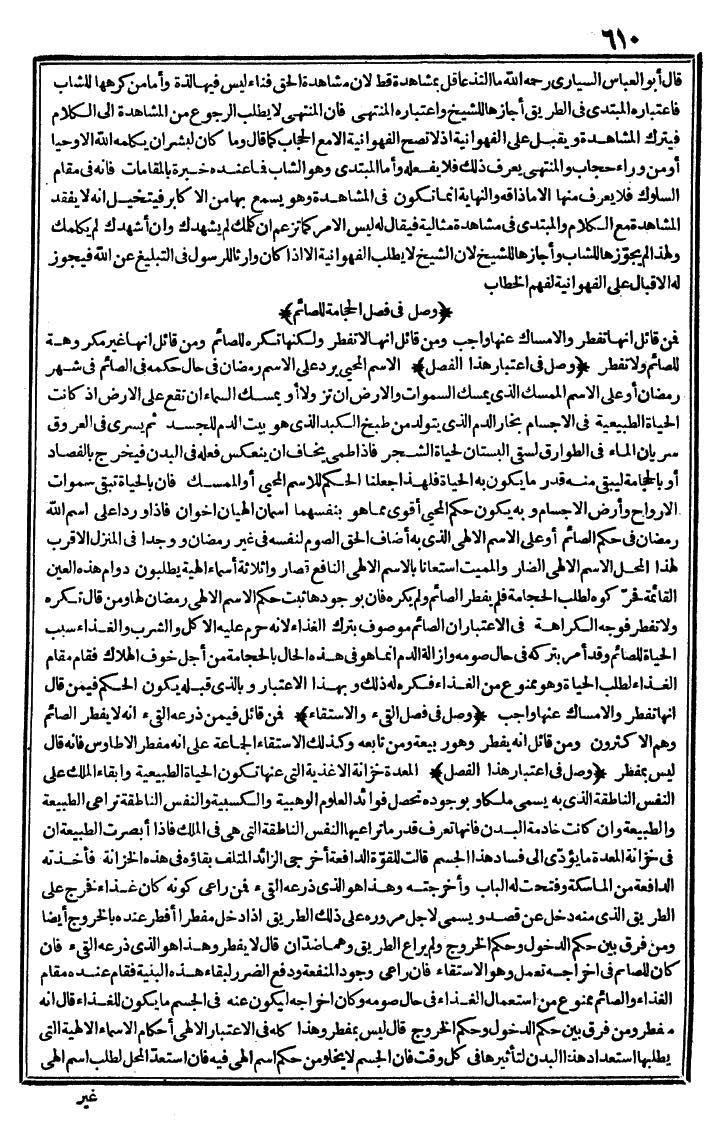 ٦١٠
قال أبو العباس السيارى رحمه الله ما التذ عاقل بمشاهدة قط لان مشاهدة الحق فناء ليس فيها لذة وأما من كرهها للشاب
فاعتباره المبتدى فى الطريق أجازها للشيخ واعتباره المنتهى فان المنتهى لا يطلب الرجوع من المشاهدة الى الكلام
فيترك المشاهدة ويقبل على الفهوانية اذ لا تصح الفهوانية الامع الحجاب كما قال وما كان لبشر ان يكلمه الله الا وحيا
أو من وراء حجاب والمنتهى يعرف ذلك فلا يفعله وأما المبتدى وهو الشاب فما عنده خبرة بالمقامات فانه فى مقام
السلوك فلا يعرف منها الا ماذاقه والنهاية انما تكون فى المشاهدة وهو يسمع بها من الاكابر فيتخيل انه لا يفقد
المشاهدة مع الكلام والمبتدى فى مشاهدة مثالية فيقال له ليس الامر كما تزعم ان كلمك لم يشهدك وان أشهدك لم يكلمك
ولهذا لم يجوّزها للشاب وأجازها للشيخ لان الشيخ لا يطلب الفهوانية الا اذا كان وارثا للرسول فى التبليغ عن الله فيجوز
له الاقبال على الفهوانية لفهم الخطاب
﴿وصل فى فصل الحجامة للصائم﴾
فمن قائل انها تفطر والامساك عنها واجب ومن قائل انها لا تفطر ولكنها تكره للصائم ومن قائل انها غير مكروهة
للصائم ولا تفطر ﴿وصل فى اعتبار هذا الفصل﴾ الاسم المحيى يرد على الاسم رمضان فى حال حكمه فى الصائم فى شهر
رمضان أو على الاسم الممسك الذى يمسك السموات والارض ان تزولا أو يمسك السماء ان تقع على الارض اذ كانت
الحياة الطبيعية فى الاجسام بخار الدم الذى يتولد من طبخ الكبد الذى هو بيت الدم للجسد ثم يسرى فى العروق
سريان الماء فى الطوارق لسقى البستان لحياة الشجر فاذا طمى يخاف ان ينعكس فعله فى البدن فيخرج بالفصاد
أو بالحجامة ليبقى منه قدر ما يكون به الحياة فلهذا جعلنا الحكم للاسم المحيى أو الممسك فان بالحياة تبقى سموات
الارواح وأرض الاجسام وبه يكون حكم المحيى أقوى مما هو بنفسهما اسمان الهيان اخوان فاذا وردا على اسم الله
رمضان فى حكم الصائم أو على الاسم الالهى الذى به أضاف الحق الصوم لنفسه فى غير رمضان ووجدا فى المنزل الاقرب
لهذا المحل الاسم الالهى الضار والمميت استعانا بالاسم الالهى النافع فصار واثلاثة أسماء الهية يطلبون دوام هذه العين
القائمة فحرّكوه لطلب الحجامة فلم يفطر الصائم ولم يكره فان بوجودها ثبت حكم الاسم الالهى رمضان لها ومن قال تكره
ولا تفطر فوجه الكراهة فى الاعتبار ان الصائم موصوف بترك الغذاء لانه حرم عليه الاكل والشرب والغذاء سبب
الحياة للصائم وقد أمر بتركه فى حال صومه وازالة الدم انما هو فى هذه الحال بالحجامة من أجل خوف الهلاك فقام مقام
الغذاء لطلب الحياة وهو ممنوع من الغذاء فكره له ذلك وبهذا الاعتبار وبالذى قبله يكون الحكم فيمن قال
انها تفطر والامساك عنها واجب ﴿وصل فى فصل القىء والاستقاء﴾ فمن قائل فيمن ذرعه القىء انه لا يفطر الصائم
وهم الاكثرون ومن قائل انه يفطر وهو ربيعة ومن تابعه وكذلك الاستقاء الجماعة على انه مفطر الا طاوس فانه قال
ليس بمفطر ﴿وصل فى اعتبار هذا الفصل﴾ المعدة خزانة الاغذية التى عنها تكون الحياة الطبيعية وابقاء الملك على
النفس الناطقة الذى به يسمى ملكا وبوجوده تحصل فوائد العلوم الوهبية والكسبية والنفس الناطقة تراعى الطبيعة
والطبيعة وان كانت خادمة البدن فانها تعرف قدر ما تراعيها النفس الناطقة التى هى فى الملك فاذا أبصرت الطبيعة ان
فى خزانة المعدة ما يؤدى الى فساد هذا الجسم قالت للقوّة الدافعة أخرجى الزائد المتلف بقاؤه فى هذه الخزانة فأخذته
الدافعة من الماسكة وفتحت له الباب وأخرجته وهذا هو الذى ذرعه القىء فمن راعى كونه كان غذاء فخرج على
الطريق الذى منه دخل عن قصد ويسمى لاجل مروره على ذلك الطريق اذا دخل مفطرا أفطر عنده بالخروج أيضا
ومن فرق بين حكم الدخول وحكم الخروج ولم يراع الطريق وهما ضدّان قال لا يفطر وهذا هو الذى ذرعه القىء فان
كان للصائم فى اخراجه تعمل وهو الاستقاء فان راعى وجود المنفعة ودفع الضرر لبقاء هذه البنية فقام عنده مقام
الغذاء والصائم ممنوع من استعمال الغذاء فى حال صومه وكان اخراجه ليكون عنه فى الجسم ما يكون للغذاء قال انه
مفطر ومن فرق بين حكم الدخول وحكم الخروج قال ليس بمفطر وهذا كله فى الاعتبار الالهى أحكام الاسماء الالهية التى
يطلبها استعداد هذا البدن لتأثيرها فى كل وقت فان الجسم لا يخلو من حكم اسم الهى فيه فان استعدّ المحل لطلب اسم الهى
غير